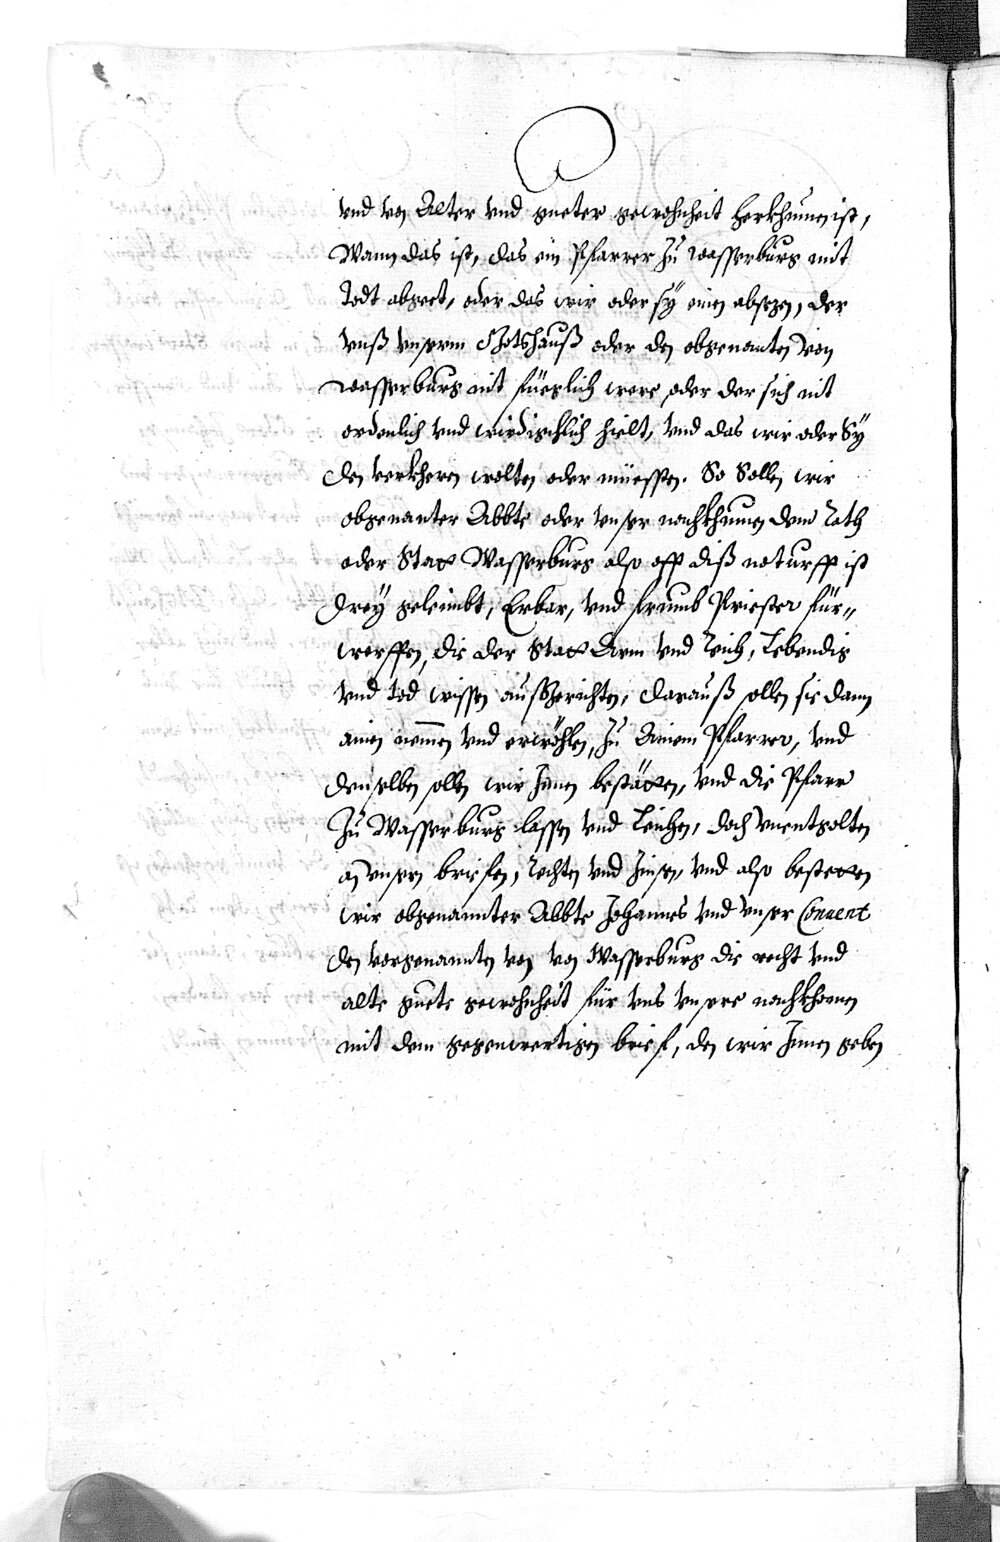 vnd von Alter vnd gueter gewohnheit herkhumen ist,
Wann das ist, das ein Pfarrer zu wasserburg mit
todt abgeet, oder das wir oder sÿ einen absezen, der
vnß vnserm Gotshauß oder den obgenanten von
wasserburg nit füeglich were, oder der sich nit
ordenlich vnd wirdischlich hielt, vnd das wir oder Sÿ
den verkheren wolten oder müessen. So Sollen wir
obgenanter Abbte oder vnser nachkhumen dem Rath
oder Statt Wasserburg also offt diß noturfft ist
dreÿ geleimbt, Erbar, vnd frumb Priester für-
werffen, die der Statt Arm vnd Reich, Lebendig
vnd tod wissen außzerichten, darauß sollen sie dann
ainen nemen vnd erwöhlen, zu Ainem Pfarrer, vnd
denselben sollen wir Innen bestätten, vnd die Pfarr
zu Wasserburg lassen vnd Leichen, doch vnentgolten
an vnsern briefen, Rechten vnd Zinsen, vnd also bestetten
wir obgenannter Abbte Johannes vnd vnser Conuent
den vorgenannten von von Wasserburg die recht vnd
alte guete gewohnheit für vns vnsere nachkhomen
mit dem gegenwertigen brief, den wir Innen geben